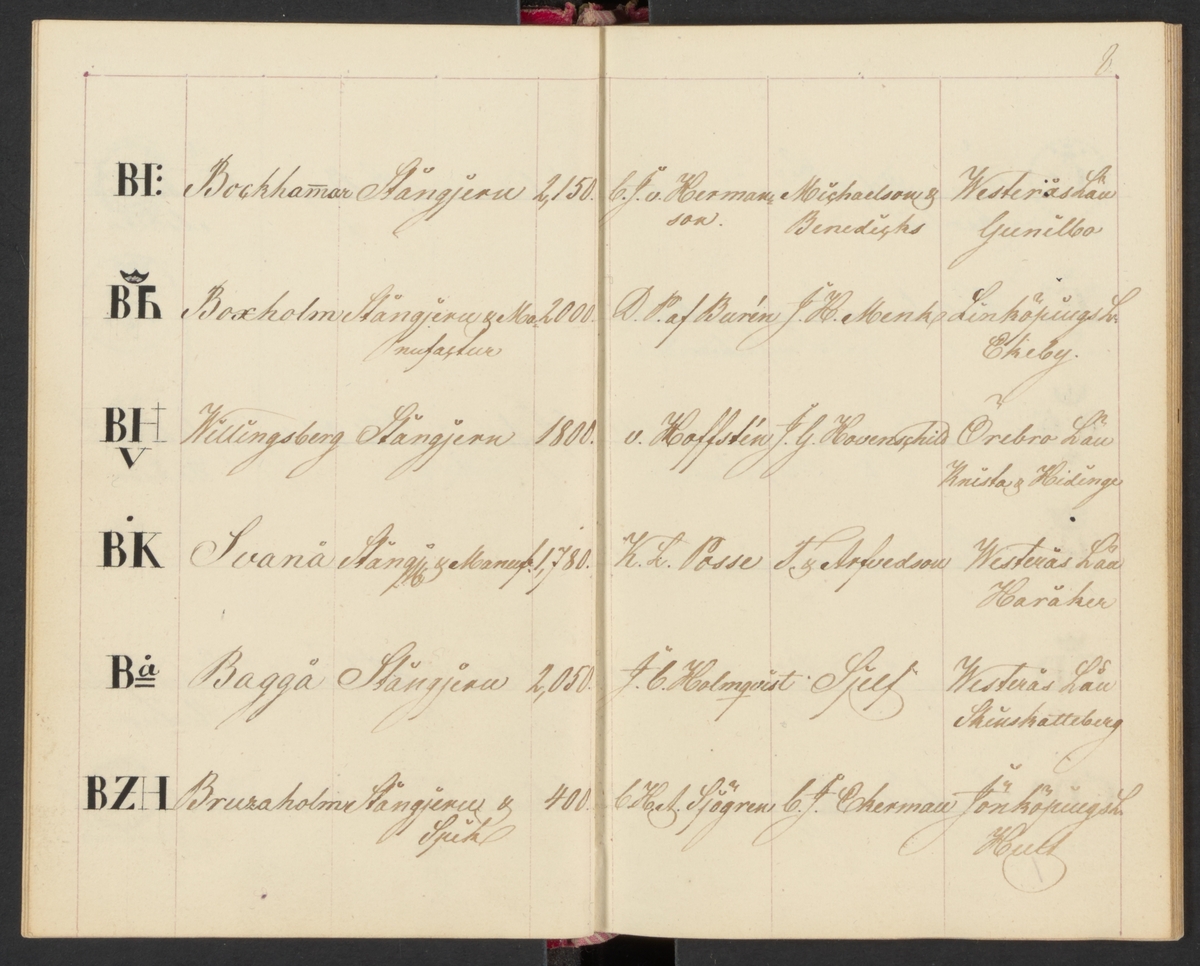 8
BH: Bockham̄ar Stångjern 2,150. C. J. v. Herman= Michaelson & Westerås Län
son. Benedicks Gunilbo
Bh Boxholm Stångjern & Ma= 2000. D. P. af Burén J. H. Menk Linköpings L.
nufactur Ekeby.
BH Willingsberg Stångjern 1800. v. Hoffstén J. G. Hovenschild Örebro Län
V Knista & Hidinge
BK Svanå Stångj. & Manuf. 1,780. K. L. Posse T. & Arfvedson Westerås Län
Haråker
Bå Baggå Stångjern 2,050. J. C. Holmqvist Sjelf Westerås Län
Skinskatteberg
BZH Bruzaholm Stångjern & 400. C. H. A. Sjögren C. J. Ekerman Jönköpings L.
Spik Hult